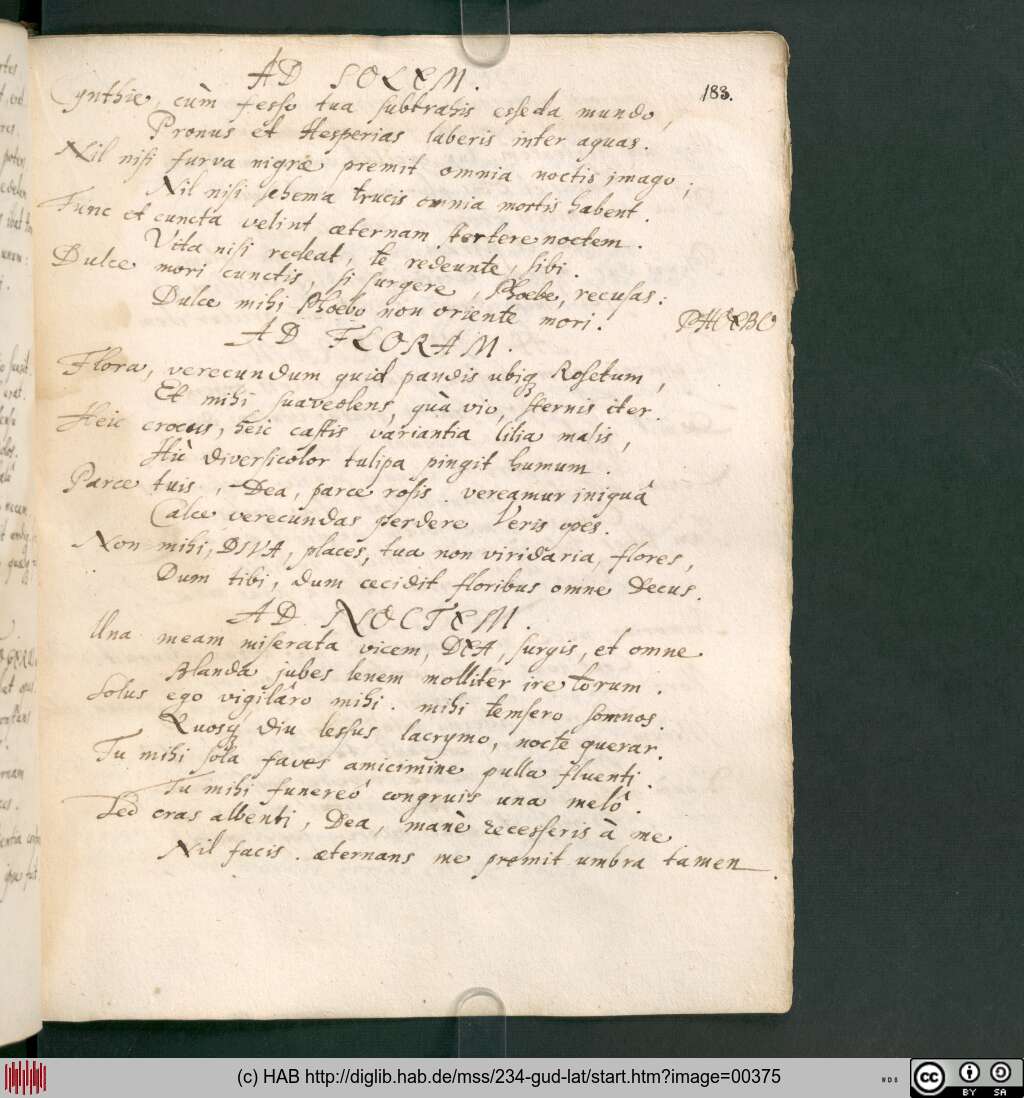 183.
AD SOLEM.
Cynthie, cùm fesso tua subtrahis esseda mundo,
Pronus et Hesperias laberis inter aquas.
Nil nisi furva nigræ premit omnia noctis imago;
Nil nisi schema trucis omnia mortis habent.
Tunc et cuncta velint æternam stertere noctem.
Vita nisi redeat, te redeunte, sibi.
Dulce mori cunctis, si surgere, Phoebe, recusas:
Dulce mihi Phoebo non oriente mori.
PHOEBO
AD FLORAM.
Flora, verecundum quid pandis ubiq Rosetum,
Et mihi suaveolens, quà vio, sternis iter.
Heic crocus, heic castis variantia lilia malis,
Hîc diversicolor tulipa pingit humum.
Parce tuis, Dea, parce rosis. vereamur iniquâ
Calce verecundas perdere Veris opes.
Non mihi, DIVA, places, tua non viridaria, flores,
Dum tibi, dum cecidit floribus omne decus.
AD NOCTEM.
Una meam miserata vicem, DEA, surgis, et omne
Blandâ jubes lenem molliter ire torum.
Solus ego vigilâro mihi. mihi temsero somnos.
Quosq diu lessus lacrymo, nocte querar.
Tu mihi sola faves amicimine pulla fluenti.
Tu mihi funereô congruis una melô.
Sed cras albenti, Dea, manè recesseris à me
Nil facis. æternans me premit umbra tamen.
(c) HAB http://diglib.hab.de/mss/234-gud-lat/start.htm?image=00375
cc BY SA